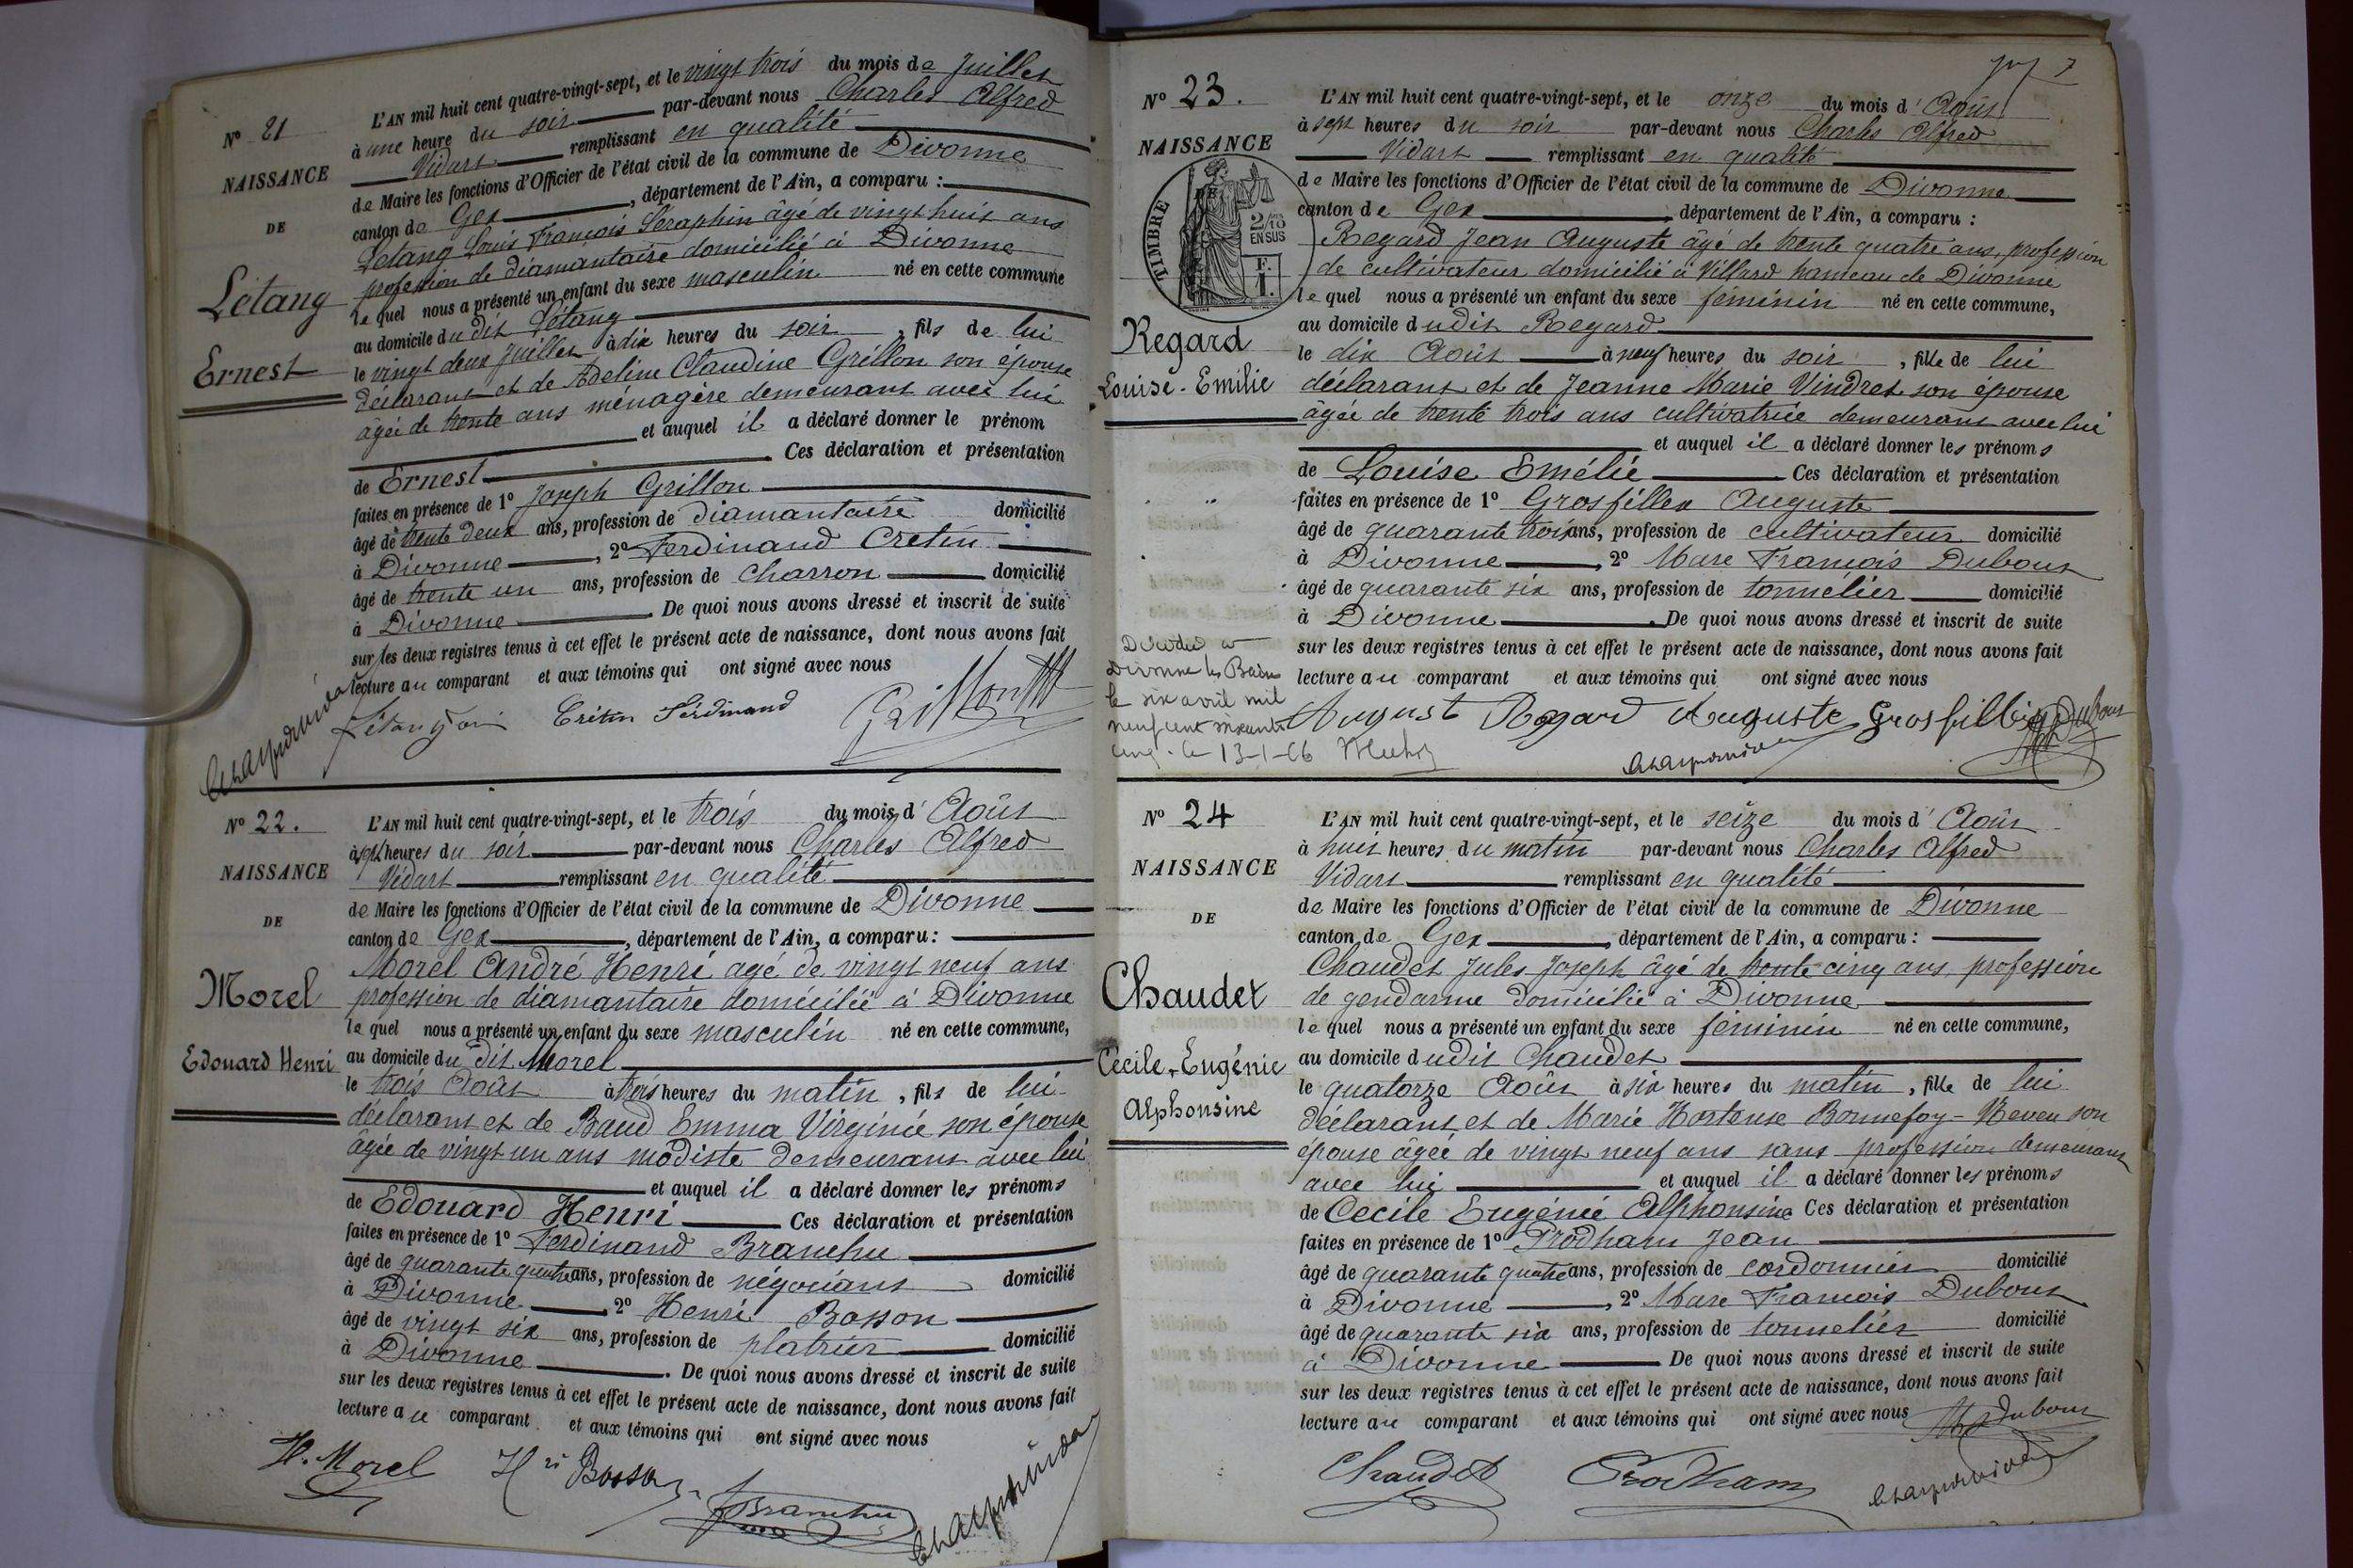 N° 21
NAISSANCE
DE
Létang
Ernest
L'AN mil huit cent quatre-vingt-sept, et le vingt trois du mois de Juillet
à une heure du soir par-devant nous Charles Alfred
Vidart remplissant en qualité
de Maire les fonctions d'Officier de l'état civil de la commune de Divonne
canton de Gex, département de l'Ain, a comparu :
Létang Louis François Séraphin âgé de vingt huit ans
profession de diamantaire domicilié à Divonne
lequel nous a présenté un enfant du sexe masculin né en cette commune
au domicile du dit Létang
le vingt deux Juillet à dix heures du soir, fils de lui
déclarant et de Adeline Claudine Grillon son épouse
âgée de trente ans ménagère demeurant avec lui
et auquel il a déclaré donner le prénom
de Ernest Ces déclaration et présentation
faites en présence de 1° Joseph Grillon
âgé de trente deux ans, profession de diamantaire domicilié
à Divonne, 2° Ferdinand Cretin
âgé de trente un ans, profession de charron domicilié
à Divonne. De quoi nous avons dressé et inscrit de suite
sur les deux registres tenus à cet effet le présent acte de naissance, dont nous avons fait
lecture au comparant et aux témoins qui ont signé avec nous
Crétin Ferdinand
N° 22.
NAISSANCE
DE
Morel
Edouard Henri
L'AN mil huit cent quatre-vingt-sept, et le trois du mois d'Août
à sept heures du soir par-devant nous Charles Alfred
Vidart remplissant en qualité
de Maire les fonctions d'Officier de l'état civil de la commune de Divonne
canton de Gex, département de l'Ain, a comparu :
Morel André Henri agé de vingt neuf ans
profession de diamantaire domicilié à Divonne
lequel nous a présenté un enfant du sexe masculin né en cette commune,
au domicile du dit Morel
le trois Août à trois heures du matin, fils de lui
déclarant et de Baud Emma Virginie son épouse
âgée de vingt un ans modiste demeurant avec lui
et auquel il a déclaré donner les prénoms
de Edouard Henri Ces déclaration et présentation
faites en présence de 1° Ferdinand Branchu
âgé de quarante quatre ans, profession de négociant domicilié
à Divonne, 2° Henri Bosson
âgé de vingt six ans, profession de platrier domicilié
à Divonne. De quoi nous avons dressé et inscrit de suite
sur les deux registres tenus à cet effet le présent acte de naissance, dont nous avons fait
lecture au comparant et aux témoins qui ont signé avec nous
H. Morel Hri Bosson
Branchu
7
N° 23.
NAISSANCE
TIMBRE
DE
2/10
EN SUS
F.
1.
Regard
Louise-Emilie
L'AN mil huit cent quatre-vingt-sept, et le onze du mois d'Août
à sept heures du soir par-devant nous Charles Alfred
Vidart remplissant en qualité
de Maire les fonctions d'Officier de l'état civil de la commune de Divonne
canton de Gex, département de l'Ain, a comparu :
Regard Jean Auguste âgé de trente quatre ans, profession
de cultivateur domicilié à Villard hameau de Divonne
lequel nous a présenté un enfant du sexe féminin né en cette commune,
au domicile dudit Regard
le dix Août à neuf heures du soir, fille de lui
déclarant et de Jeanne Marie Vindret son épouse
âgée de trente trois ans cultivatrice demeurant avec lui
et auquel il a déclaré donner les prénoms
de Louise Emélie Ces déclaration et présentation
faites en présence de 1° Grosfillex Auguste
âgé de quarante trois ans, profession de cultivateur domicilié
à Divonne, 2° Marc François Dubout
âgé de quarante six ans, profession de tonnelier domicilié
à Divonne. De quoi nous avons dressé et inscrit de suite
sur les deux registres tenus à cet effet le présent acte de naissance, dont nous avons fait
lecture au comparant et aux témoins qui ont signé avec nous
Décédée à
Divonne les Bains
le six avril mil
neuf cent soixante
cinq. Le 13-1-66
August Regard Auguste Grosfillex Dubout
N° 24
NAISSANCE
DE
Chaudet
Cécile-Eugénie
Alphonsine
L'AN mil huit cent quatre-vingt-sept, et le seize du mois d'Août
à huit heures du matin par-devant nous Charles Alfred
Vidart remplissant en qualité
de Maire les fonctions d'Officier de l'état civil de la commune de Divonne
canton de Gex, département de l'Ain, a comparu :
Chaudet Jules Joseph âgé de trente cinq ans, profession
de gendarme domicilié à Divonne
lequel nous a présenté un enfant du sexe féminin né en cette commune,
au domicile dudit Chaudet
le quatorze Août à six heures du matin, fille de lui
déclarant et de Marie Hortense Bonnefoy-Neveu son
épouse âgée de vingt neuf ans sans profession demeurant
avec lui et auquel il a déclaré donner les prénoms
de Cécile Eugénie Alphonsine Ces déclaration et présentation
faites en présence de 1° Prodham Jean
âgé de quarante quatre ans, profession de cordonnier domicilié
à Divonne, 2° Marc François Dubout
âgé de quarante six ans, profession de tonnelier domicilié
à Divonne De quoi nous avons dressé et inscrit de suite
sur les deux registres tenus à cet effet le présent acte de naissance, dont nous avons fait
lecture au comparant et aux témoins qui ont signé avec nous Dubout
Chaudet Prodham